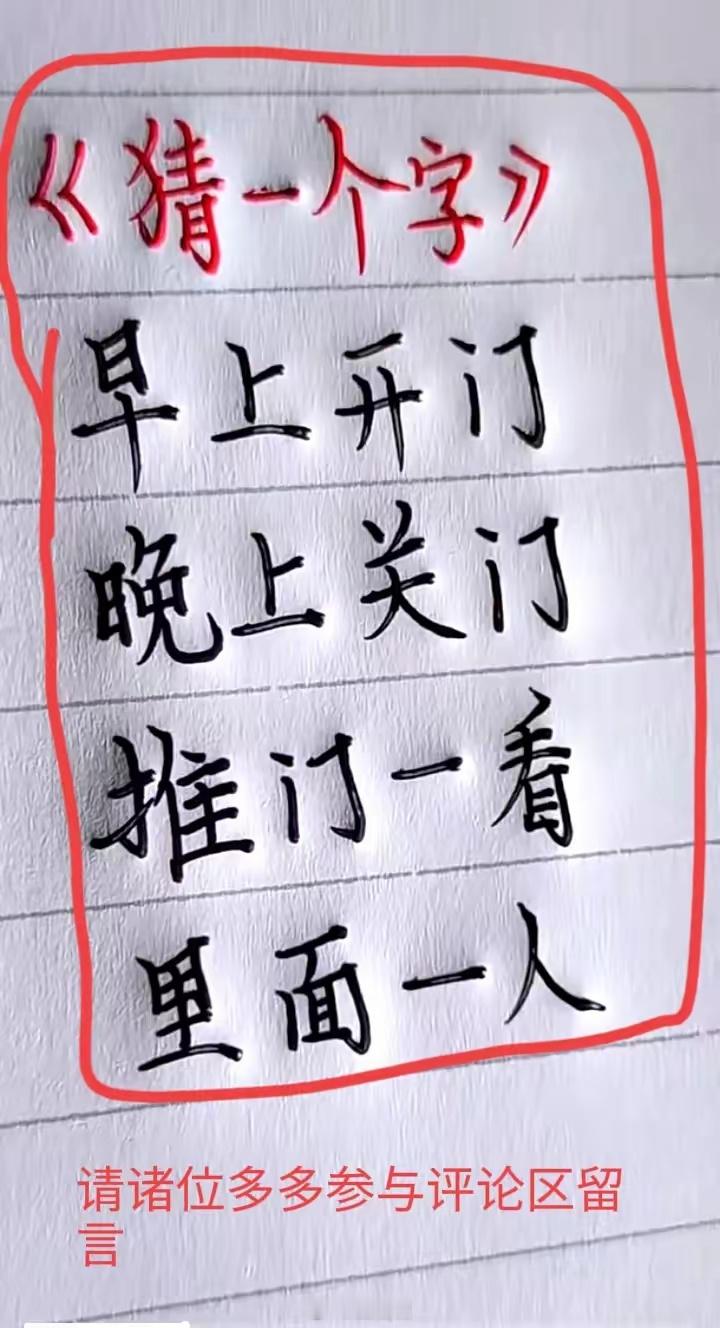 《猜一个字》
早上开门
晚上关门
推门一看
里面一人
请诸位多多参与评论区留
言